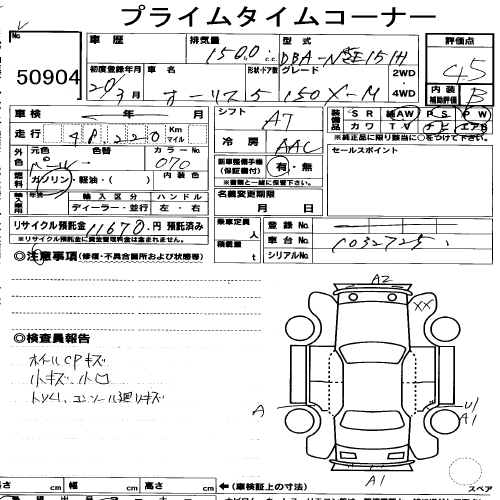 プライムタイムコーナー
50904
車歴
排気量 1500 c.c.
型式 DBA-NZE151H
評価点 4.5
内装 補助評価 B
初度登録年月 20年3月
車名 オーリス
形状・ドア数 5
グレード 150X-M
2WD
4WD
車検 年 月
走行 48,220 Km マイル
シフト A7
冷房 AAC
装備品 SR 純AW PS PW
カワ TV ナビ エアB
※純正品に限り該当に○をつけて下さい。
外色 元色 パール 色替 カラーNo. 070
燃料 ガソリン・軽油・( ) 内装色
新車整備手帳 (保証書付) 有・無
※書類と一緒に保管下さい。
セールスポイント
輸入車用 年式 輸入区分 ハンドル
ディーラー・並行 左・右
名義変更期限 月 日
リサイクル預託金 11670円 預託済み
※リサイクル預託金に資金管理料金は含まれません。
乗車定員 人
積載量 t
登録No.
車台No. C032725
シリアルNo.
◎注意事項(修復・不具合箇所および状態等)
◎検査員報告
ホイールCPキズ
小キズ、小凹
トリム、コンソール廻りキズ
A2
XX
A
U1
A1
A1
長さ cm 幅 cm 高さ cm ←(車検証上の寸法)
スペア